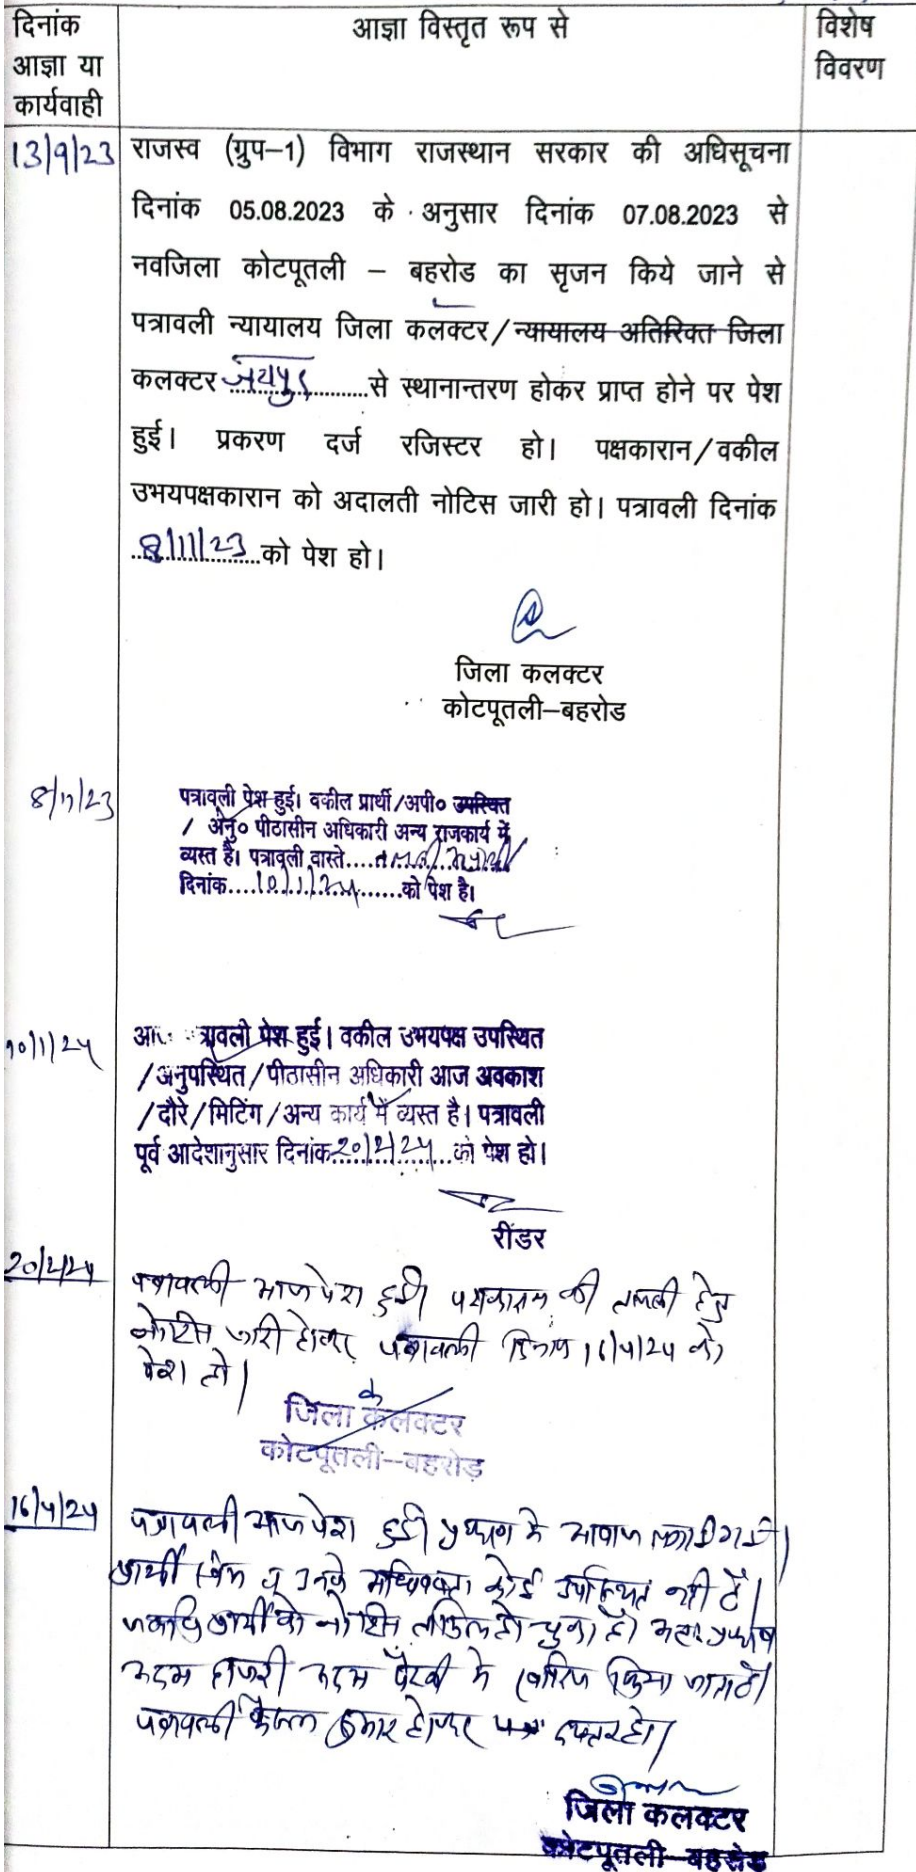 दिनांक आज्ञा विस्तृत रूप से विशेष
आज्ञा या विवरण
कार्यवाही
13/9/23 राजस्व (ग्रुप–1) विभाग राजस्थान सरकार की अधिसूचना
दिनांक 05.08.2023 के अनुसार दिनांक 07.08.2023 से
नवजिला कोटपूतली – बहरोड का सृजन किये जाने से
पत्रावली न्यायालय जिला कलक्टर/न्यायालय अतिरिक्त जिला
कलक्टर जयपुर से स्थानान्तरण होकर प्राप्त होने पर पेश
हुई। प्रकरण दर्ज रजिस्टर हो। पक्षकारान/वकील
उभयपक्षकारान को अदालती नोटिस जारी हो। पत्रावली दिनांक
8/11/23 को पेश हो।
जिला कलक्टर
कोटपूतली–बहरोड
8/11/23 पत्रावली पेश हुई। वकील प्रार्थी/अपी० उपस्थित
/ अनु० पीठासीन अधिकारी अन्य राजकार्य में
व्यस्त है। पत्रावली वास्ते....
दिनांक....10/1/24....को पेश है।
10/1/24 आज पत्रावली पेश हुई। वकील उभयपक्ष उपस्थित
/अनुपस्थित/पीठासीन अधिकारी आज अवकाश
/दौरे/मिटिंग/अन्य कार्य में व्यस्त है। पत्रावली
पूर्व आदेशानुसार दिनांक 20/2/24 को पेश हो।
रींडर
20/2/24 पत्रावली आज पेश हुई। पक्षकारान की तलबी हेतु
नोटिस जारी होकर पत्रावली दिनांक 16/4/24 को
पेश हो।
जिला कलक्टर
कोटपूतली–बहरोड़
16/4/24 पत्रावली आज पेश हुई। प्रकरण में आवाज लगाई गयी।
प्रार्थी स्वयं व उनके अधिवक्ता कोई उपस्थित नहीं है।
जबकि प्रार्थी को नोटिस तामिल हो चुका है। अतः प्रकरण
अदम हाजरी अदम पैरवी में खारिज किया जाता है।
पत्रावली फैसल शुमार होकर दफ्तर हो।
जिला कलक्टर
कोटपूतली–बहरोड